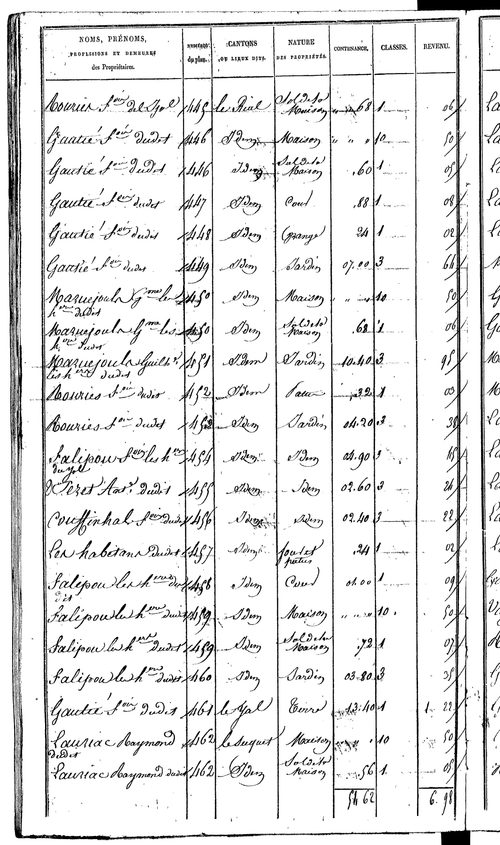 NOMS, PRÉNOMS, PROFESSIONS ET DEMEURES des Propriétaires. NUMÉROS du plan. CANTONS OU LIEUX DITS. NATURE DES PROPRIÉTÉS. CONTENANCE. CLASSES. REVENU.
445 le Sol de la Maison " " 68 1 06
Gautié dudit 446 Idem Maison " " " 10 50
Gautié dudit 446 Idem Sol de la Maison .60 1 05
Gautié dudit 447 Idem Cour .88 1 08
Gautié dudit 448 Idem Grange 24 1 02
Gautié dudit 449 Idem Jardin 07.00 3 64
Maruejouls Gme les hers dudit 450 Idem Maison " " " 10 50
Maruejouls Gme les hers dudit 450 Idem Sol de la Maison .68 1 06
Maruejouls Guilhe les hers dudit 451 Idem Jardin 10.40 3 95
dudit 452 Idem .32 1 03
dudit 453 Idem Jardin 04.20 3 38
Falipou les hers 454 Idem Idem 04.90 3
dudit 455 Idem Idem 02.60 3 24
Couffinhal dudit 456 Idem Idem 02.40 3 22
Les habitans dudit 457 Idem .24 1 02
Falipou les hers 458 Idem Cour 01.00 1 09
Falipou les hers dudit 459 Idem Maison " " " 10 50
Falipou les hers dudit 459 Idem Sol de la Maison .72 1 07
Falipou les hers dudit 460 Idem Jardin 03.80 3 35
Gautié dudit 461 Terre 13.40 1 1 22
Lauriac Raymond dudit 462 le suquet Maison " " 10 50
Lauriac Raymond dudit 462 Idem Sol de la Maison 56 1 05
54 62 6. 98